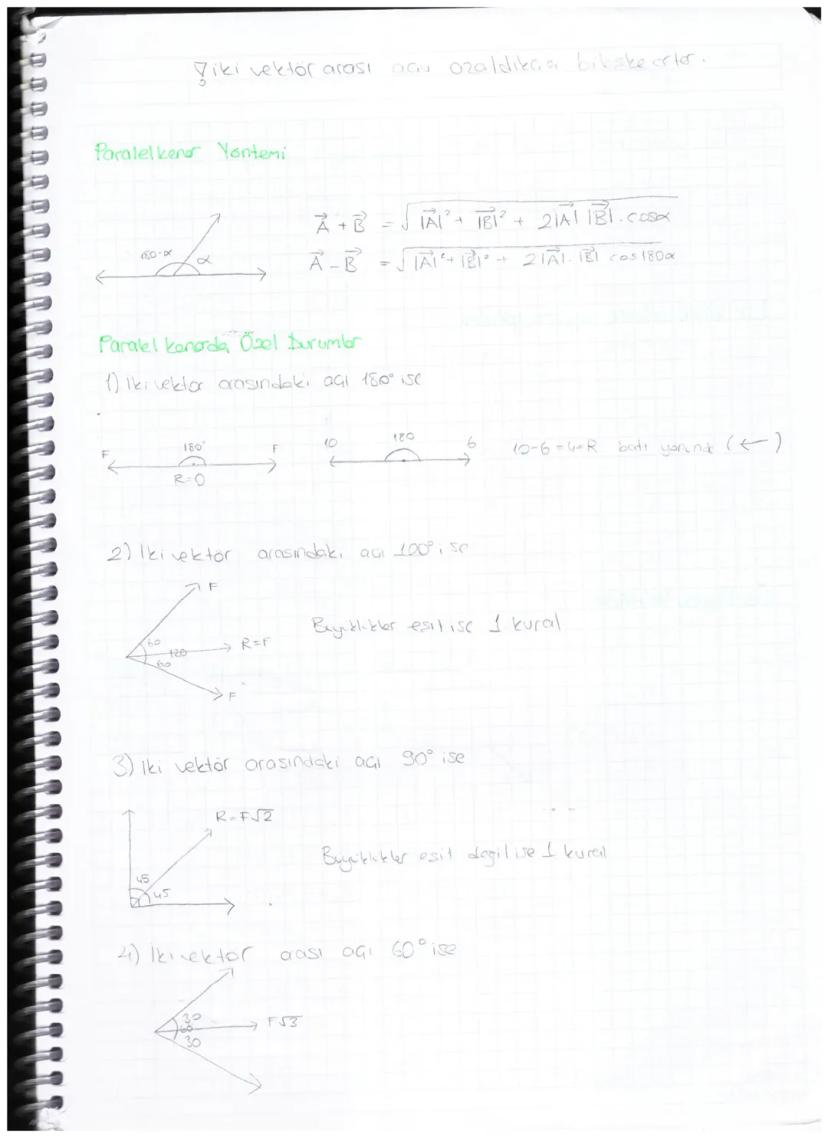 iki vektör arası açı azaldıkça bileşke artar.
Paralelkenar Yöntemi
180-α α
A⃗ + B⃗ = √|A⃗|² + |B⃗|² + 2|A⃗| |B⃗| . cosα
A⃗ - B⃗ = √|A⃗|² + |B⃗|² + 2|A⃗| . |B⃗| cos180α
Paralel kenarda Özel Durumlar
1) İki vektör arasındaki açı 180° ise
F 180° F
R=0
10 180 6
10-6=4=R batı yönünde (←)
2) İki vektör arasındaki açı 120° ise
F
60
120 R=F
60
F
Büyüklükler eşit ise 1 kural
3) İki vektör arasındaki açı 90° ise
R=F√2
45
45
Büyüklükler eşit değil ise 1 kural
4) İki vektör arası açı 60° ise
30
60 F√3
30